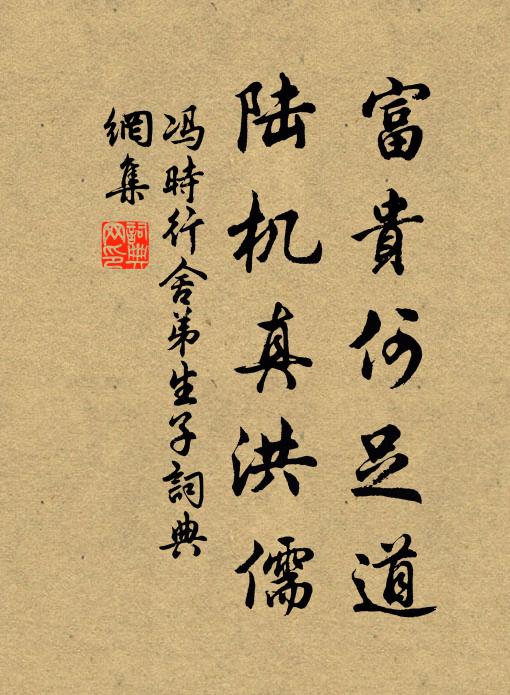 富貴何足道
陆机真洪儒
冯時行舍弟生子詞典
網集
詞典
网印